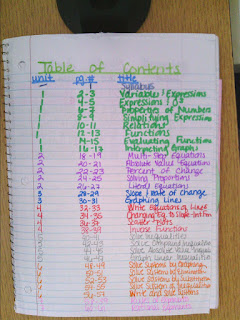 Table of Contents
unit pg.# title
1 1 Syllabus
1 2-3 Variables/Expressions
1 4-5 Expressions/O²
1 6-7 Properties of Numbers
1 8-9 Simplifying Expression
1 10-11 Relations
1 12-13 Functions
1 14-15 Evaluating Function
1 16-17 Interpreting Graphs
2 18-19 Multi-Step Equations
2 20-21 Absolute Value Equations
2 22-23 Percent of Change
2 24-25 Solving Proportions
2 26-27 Literal Equations
3 28-29 Slope/rate of change
3 30-31 Graphing Lines
4 32-33 Write Equations of Lines
4 34-35 Changing Eq. to Slope-Int Form
4 36-37 Scatter Plots
4 38-39 Inverse Functions
Solve Inequalities
Solve Compound Inequalities
Solve Absolute Value
Graph Linear Inequalities
48-49 Solve Systems by Graphing
Solve Systems by
Solve Systems by
Write and Solve Systems